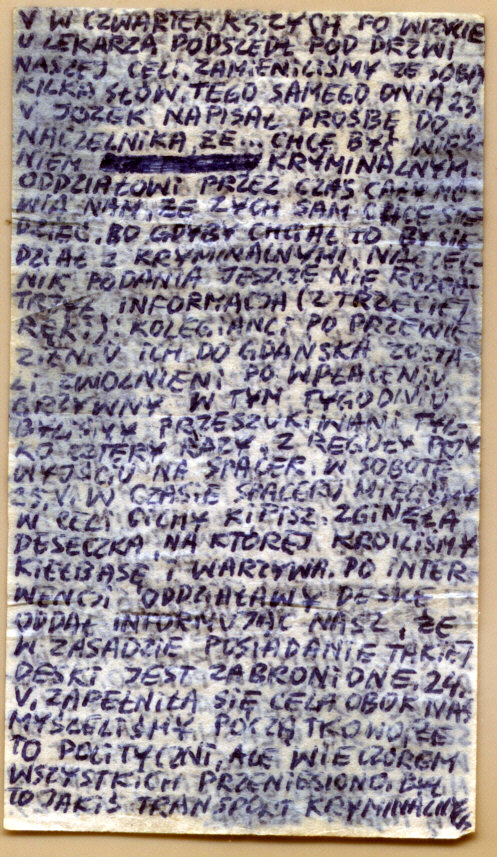 V W CZWARTEK KS. ZYCH PO WIZYCIE
U LEKARZA PODSZEDŁ POD DRZWI
NASZEJ CELI. ZAMIENILIŚMY ZE SOBĄ
KILKA SŁÓW. TEGO SAMEGO DNIA 23
V JÓZEK NAPISAŁ PROŚBĘ DO
NACZELNIKA, ŻE... CHCE BYĆ WIĘŹ
NIEM KRYMINALNYM.
ODDZIAŁOWI PRZEZ CZAS CAŁY MÓ
WIĄ NAM, ŻE ZYCH SAM CHCE SIE
DZIEĆ. BO GDYBY CHCIAŁ TO BY SIE
DZIAŁ Z KRYMINALNYMI. NACZEL-
NIK PODANIA JESZCZE NIE ROZPA-
TRZYŁ. INFORMACJA (Z TRZECIEJ
RĘKI): KOLEGIANCI PO PRZEWIE
ZIENIU ICH DO GDAŃSKA ZOSTA
LI ZWOLNIENI PO WPŁACENIU
GRZYWNY. W TYM TYGODNIU
BYLIŚMY PRZESZUKIWANI TYL
KO CZTERY RAZY. Z REGUŁY PRZY
WYJŚCIU NA SPACER. W SOBOTĘ
25.V. W CZASIE SPACERU MIELIŚMY
W CELI CICHY KIPISZ. ZGINĘŁA
DESECZKA, NA KTÓREJ KROILIŚMY
KIEŁBASĘ I WARZYWA. PO INTER
WENCJI ODDZIAŁAWY DESKĘ
ODDAŁ INFORMUJĄC NASZ, ŻE
W ZASADZIE POSIADANIE TAKIEJ
DESKI JEST ZABRONIONE. 24.
V. ZAPEŁNIŁA SIĘ CELA OBOK NAS
MYŚLELIŚMY, POCZĄTKOWO, ŻE
TO POLITYCZNI, ALE WIECZOREM
WSZYSTKICH PRZENIESIONO. BYŁ
TO JAKIŚ TRANSPORT KRYMINALNY